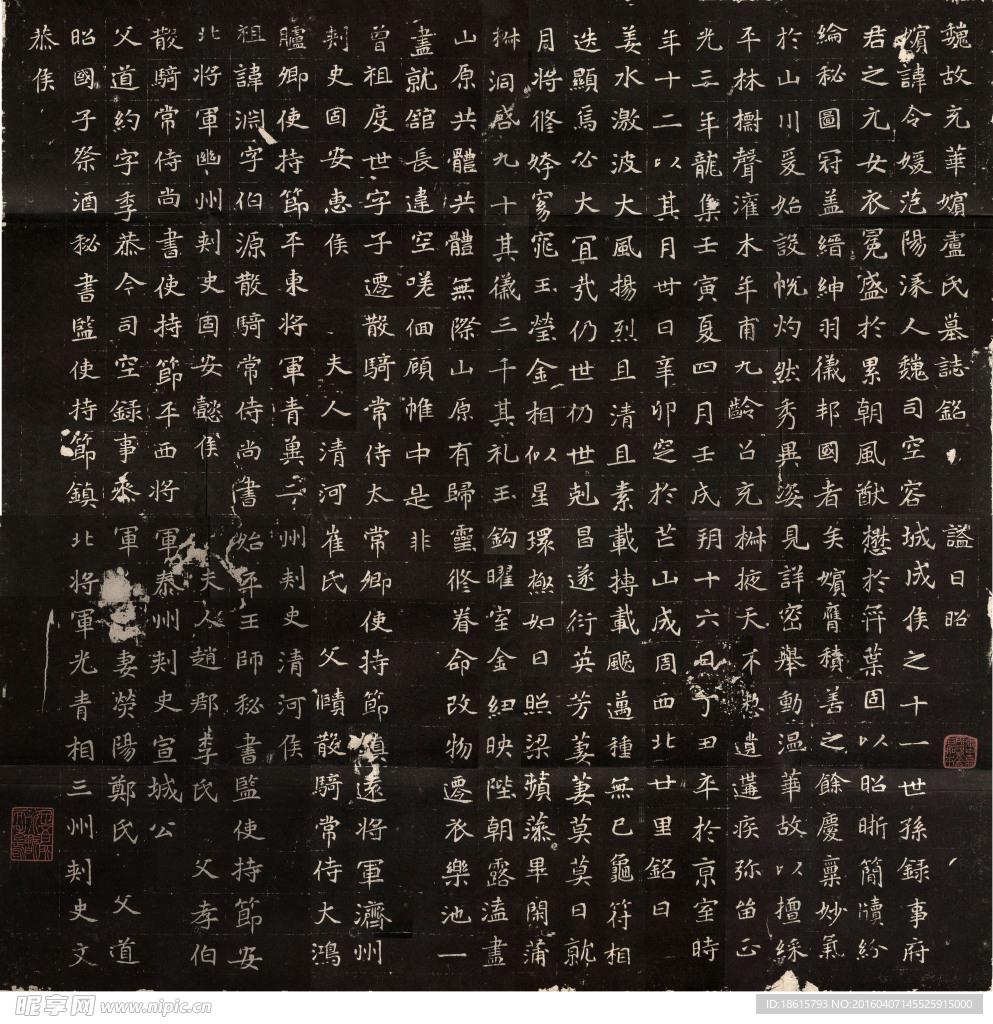 魏故充華嬪盧氏墓誌銘 諡曰昭
嬪諱令媛范陽涿人魏司空容城成侯之十一世孫録事府
君之元女衣冕盛於累朝風猷懋於弈葉固以昭晰簡牘紛
綸秘圖冠盖縉紳羽儀邦國者矣嬪膺積善之餘慶稟妙氣
於山川爰始設帨灼然秀異姿見詳密舉動温華故以擅綵
平林檦聲灌木年甫九齡召充椒掖天不憗遺遘疾弥笛正
光三年龍集壬寅夏四月壬戌朔十六日丁丑卒於京室時
年十二以其月卅日辛卯窆於芒山成周西北廿里銘曰
姜水激波大風揚烈且清且素載摶載飈邁種無已龜符相
迭顯焉必大宜㦲仍世仍世剋昌遂衍英芳萋萋莫莫日就
月將脩姱窈窕玉瑩金相似星環極如日照梁蘋藻畢閑蒲
椒洞啓九十其儀三千其礼玉鈎曜室金紐映陛朝露溘盡
山原共體共體無際山原有歸靈脩眷命改物遷衣樂池一
盡就舘長違空嗟個顧帷中是非
曾祖度世字子遷散騎常侍太常卿使持節鎮遠將軍濟州
刺史固安惠侯 夫人清河崔氏 父賾散騎常侍大鴻
臚卿使持節平東將軍青冀二州刺史清河侯
祖諱淵字伯源散騎常侍尚書始平王師秘書監使持節安
北將軍幽州刺史固安懿侯 夫人趙郡李氏 父孝伯
散騎常侍尚書使持節平西將軍泰州刺史宣城公
父道約字季恭今司空録事叅軍 妻滎陽鄭氏 父道
昭國子祭酒秘書監使持節鎮北將軍光青相三州刺史文
恭侯
昵享网 www.nipic.cn
ID:18615793 NO:20160407145525915000